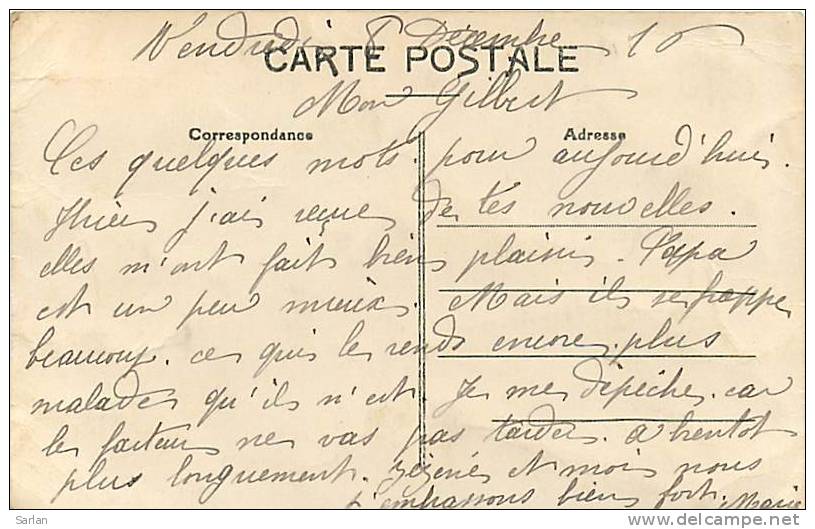 Vendredi 8 Décembre 16
CARTE POSTALE
Mon Gilbert
Correspondance Adresse
Ces quelques mots. pour aujourd'hui.
Hier j'ai reçue de tes nouvelles.
elles m'ont fait bien plaisir. Papa
est un peu mieux. Mais il se frappe
beaucoup. ce qui le rends encore plus
malade qu'ils n'est. Je me dépêche. car
le facteur ne vas pas tarder. a bentot
plus longuement. et moi nous
t'embrassons bien fort. Marie
Sarlan
delcampe.net